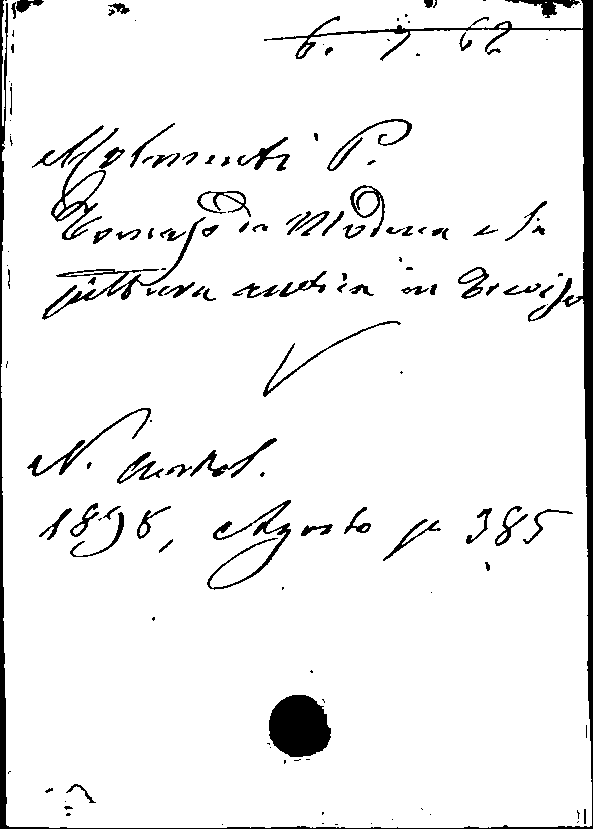 6. 7. 62
Molmenti P.
Tomaso da Modena e la
pittura antica in Treviso
N. Antol.
1898, Agosto p 385